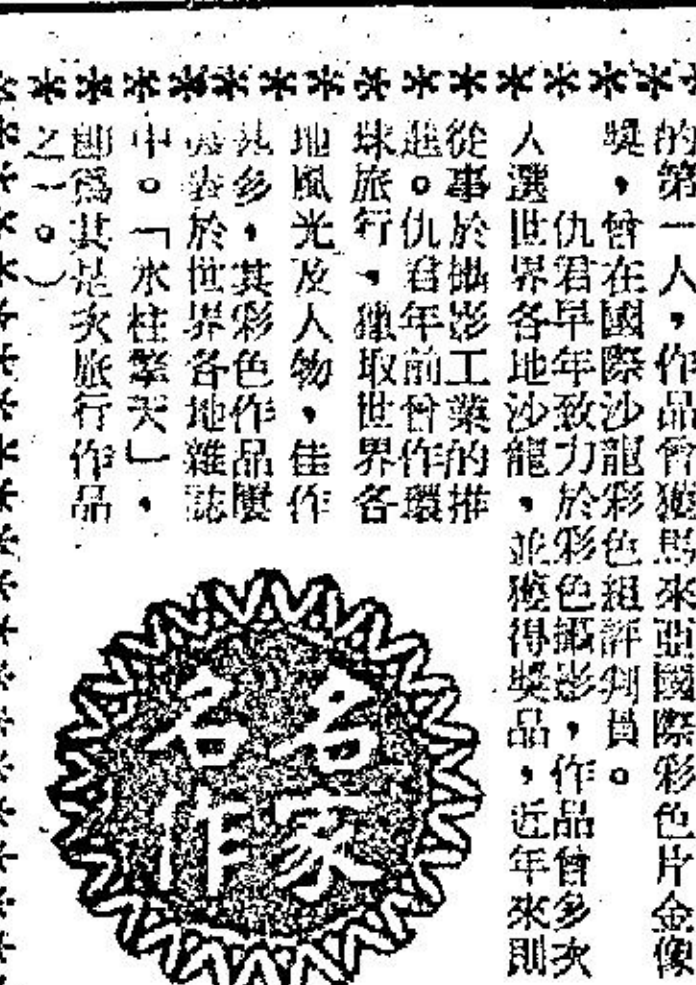 的第一人，作品曾獲馬來亞國際彩色片金像
獎，曾在國際沙龍彩色組評判員。
仇君早年致力於彩色攝影，作品曾多次
入選世界各地沙龍，並獲得獎品，近年來則
從事於攝影工業的推
進。仇君年前曾作環
球旅行，獵取世界各
地風光及人物，佳作
甚多，其彩色作品屢
發表於世界各地雜誌
中。「水柱擎天」，
卽爲其是次旅行作品
之一。）
名家
名作